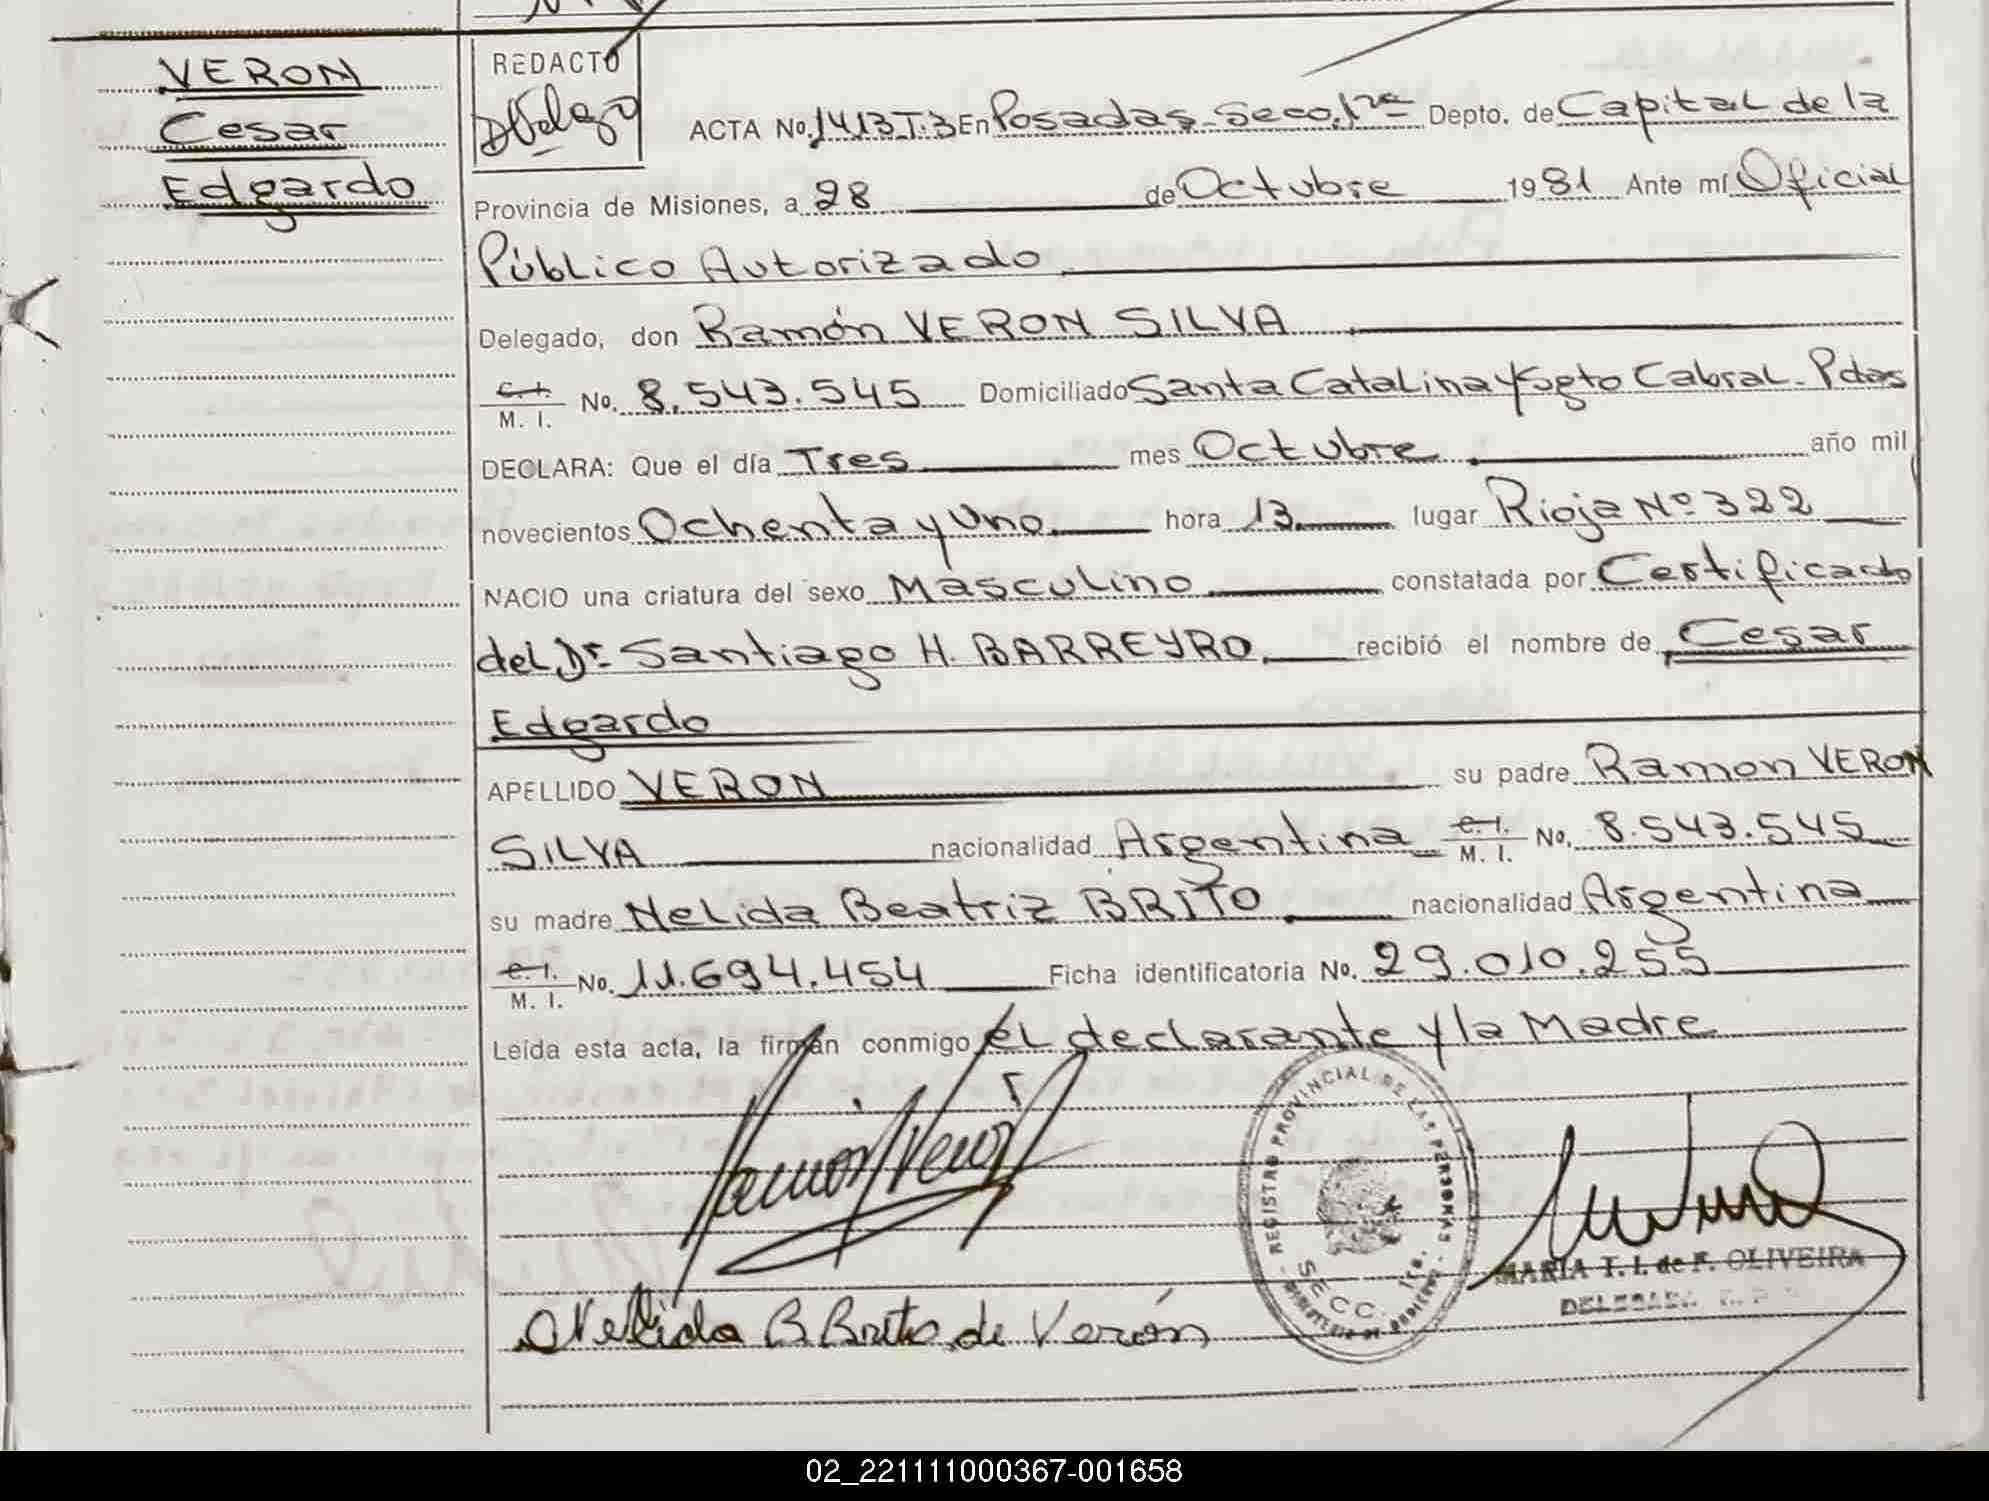 VERON
Cesar
Edgardo
REDACTO
ACTA No. 1413 T.3 En Posadas - Secc. 1ra Depto. de Capital de la
Provincia de Misiones, a 28 de Octubre 1981 Ante mí Oficial
Público Autorizado
Delegado, don Ramón VERON SILVA
C.I. M. I. No. 8.543.545 Domiciliado Santa Catalina y Sgto Cabral - Pdas
DECLARA: Que el día Tres mes Octubre año mil
novecientos Ochenta y Uno hora 13 lugar Rioja Nº 322
NACIO una criatura del sexo Masculino constatada por Certificado
del Dr. Santiago H. BARREYRO recibió el nombre de Cesar
Edgardo
APELLIDO VERON su padre Ramon VERON
SILVA nacionalidad Argentina C.I. M. I. No. 8.543.545
su madre Nelida Beatriz BRITO nacionalidad Argentina
C.I. M. I. No. 11.694.454 Ficha identificatoria No. 29.010.255
Leída esta acta, la firman conmigo el declarante y la Madre
Ramón Verón
REGISTRO PROVINCIAL DE LAS PERSONAS - MINISTERIO DE GOBIERNO -
SECC. 1ra.
MARIA T. I. de F. OLIVEIRA
DELEGADA
Nelida B. Brito de Verón
02_221111000367-001658